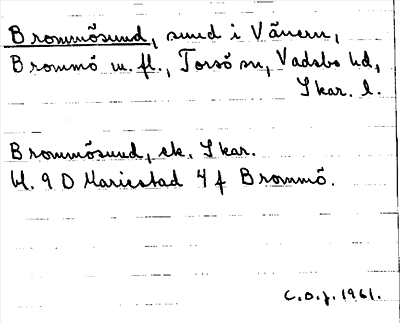 Brommösund, sund i Vänern,
Brommö m. fl., Torsö sn, Vadsbo hd,
Skar. l.
Brommösund, ek. Skar.
Bl. 9 D Mariestad 4 f Brommö.
C.O.J. 1961.